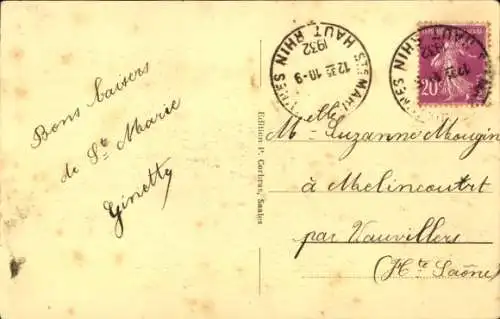 Bons baisers
de Ste Marie
Ginetty
Edition P. Corbras, Saales
STE MARIE
NES
HAUT RHIN
12 35 10-9
1932
20
Melle Suzanne Mougin
à Melincourt
par Vauvillers
(Hte Saône)